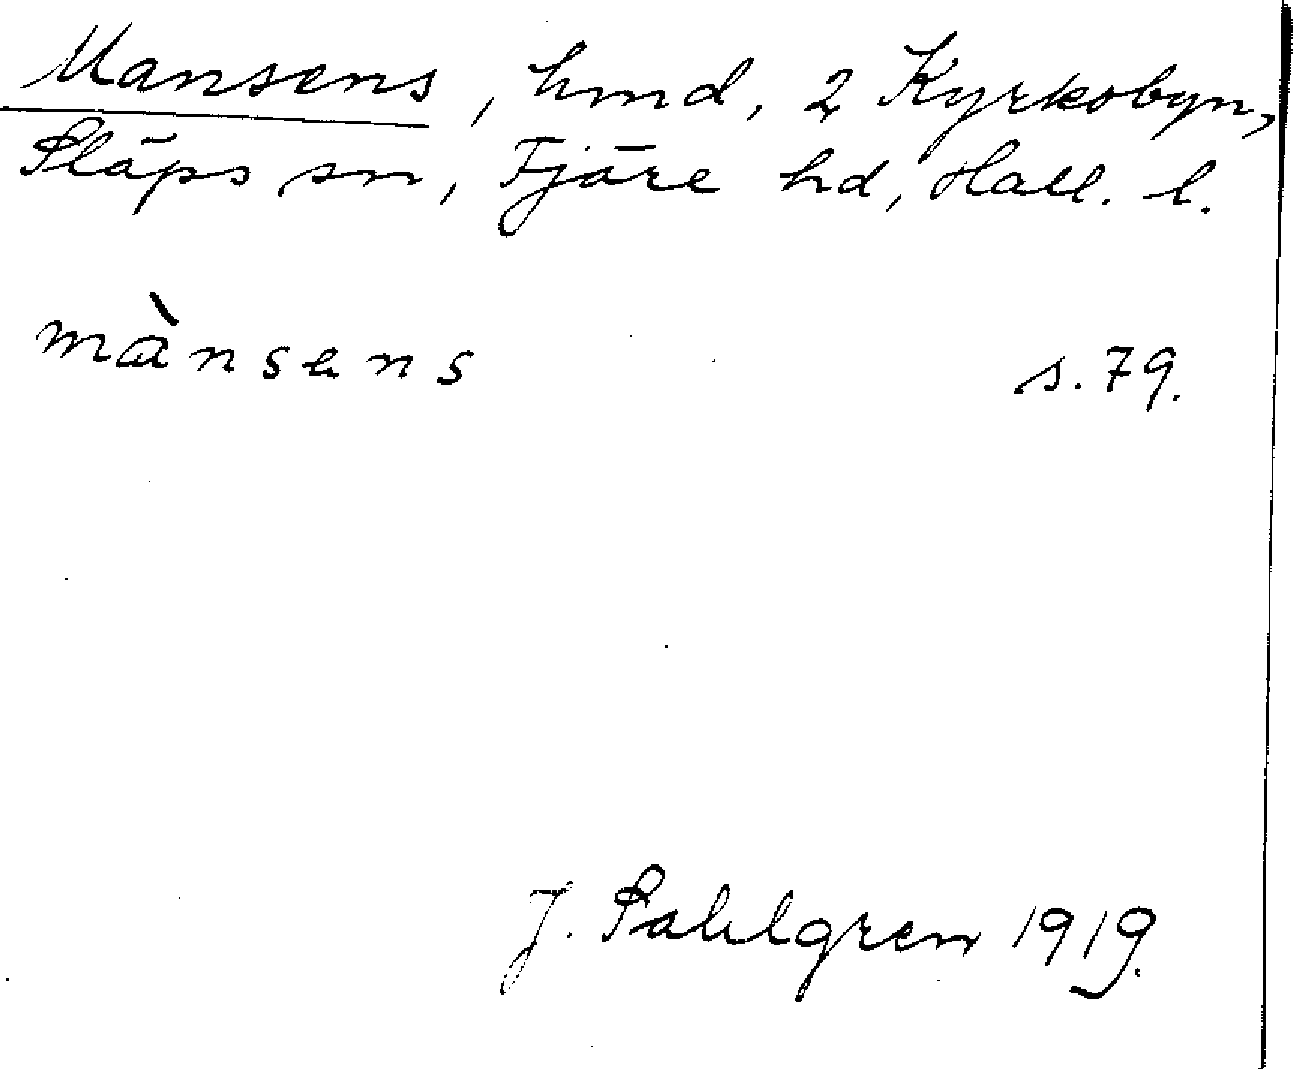 Mansens, hmd, 2 Kyrkobyn,
Släps sn, Fjäre hd, Hall. l.
mànsens s. 79.
J. Sahlgren 1919.